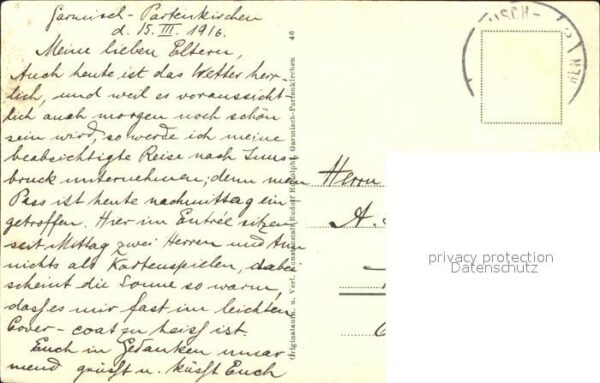 Garmisch-Partenkirchen
d. 15. III. 1916.
Meine lieben Eltern,
Auch heute ist das Wetter herr-
lich, und weil es voraussicht-
lich auch morgen noch schön
sein wird, so werde ich meine
beabsichtigte Reise nach Inns
bruck unternehmen; denn mein
Pass ist heute nachmittag ein
getroffen. Hier im Entrée sitzen
seit Mittag zwei Herren und tun
nichts als Kartenspielen, dabei
scheint die Sonne so warm,
dass es mir fast im leichten
Cover-coat zu heiss ist.
Euch in Gedanken umar
mend grüsst u. küsst Euch
Originalaufn. u. Verl. Kunstanstalt Rudolph, Garmisch-Partenkirchen 46
Herrn
A.
privacy protection
Datenschutz